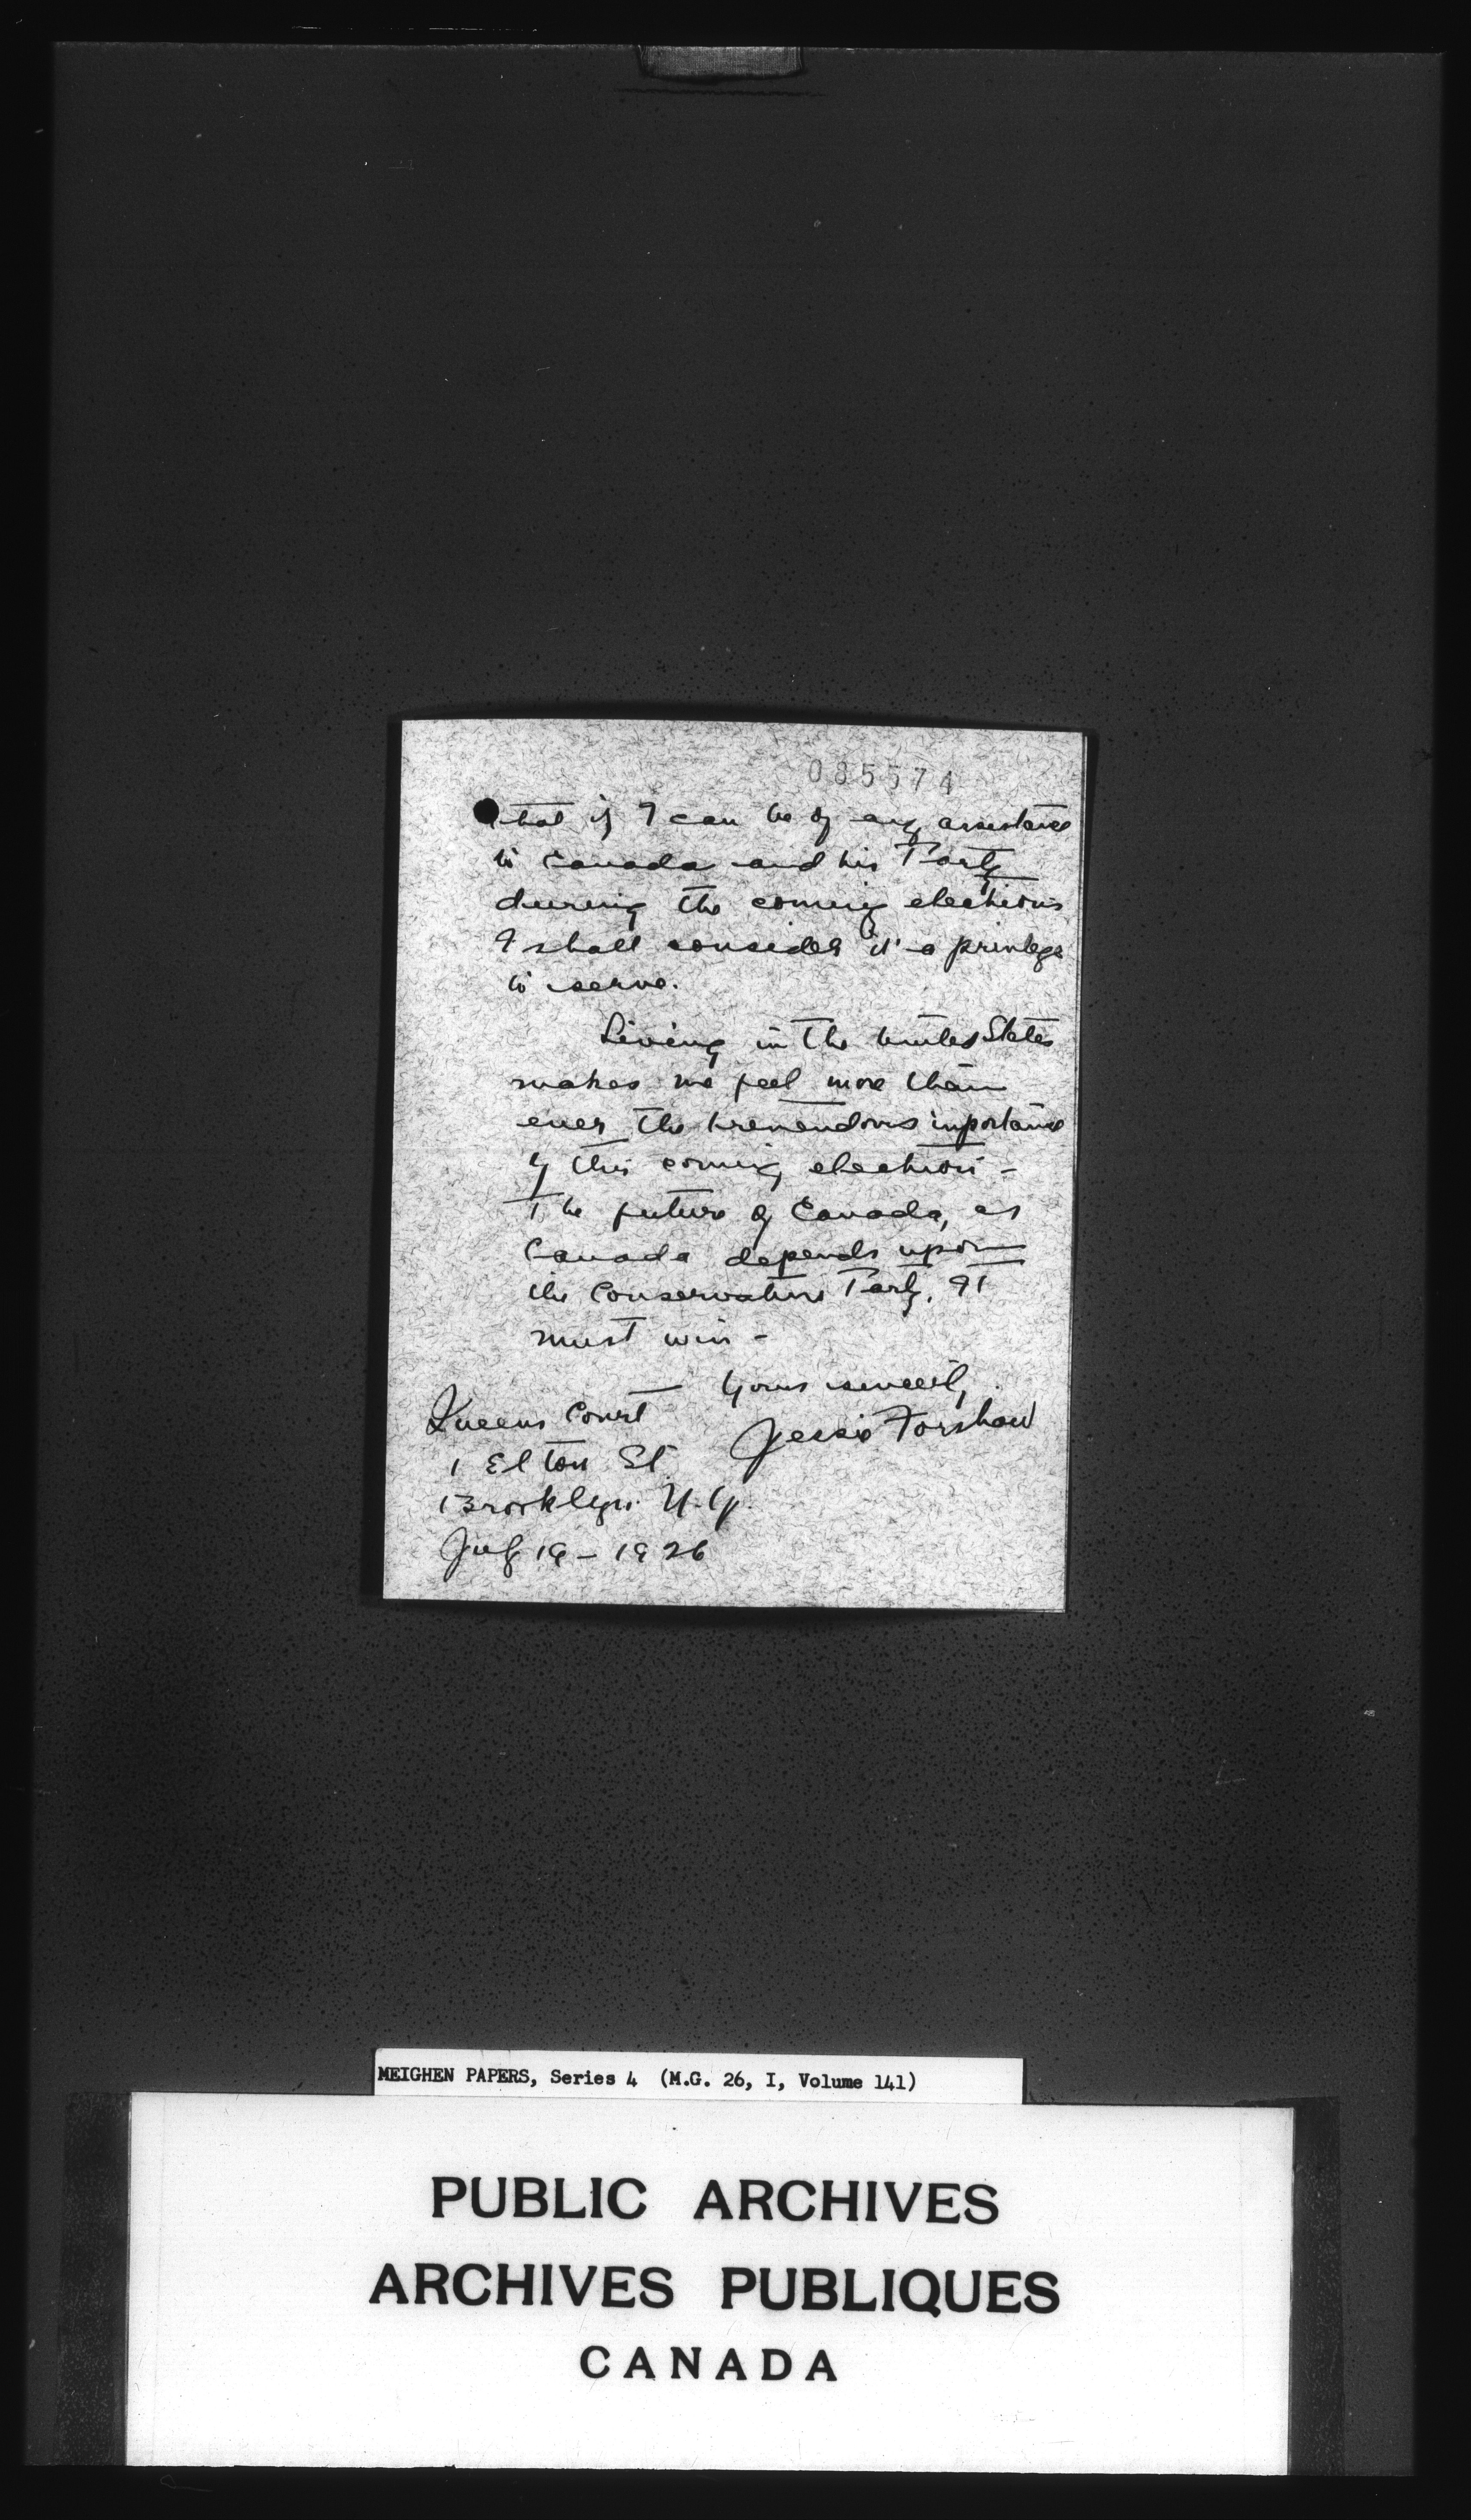 085574
that if I can be of any assistance
to Canada and his Party
during the coming elections
I shall consider it a privilege
to serve.
Living in the United States
makes me feel more than
ever the tremendous importance
of this coming election -
The future of Canada, as
Canada depends upon
the Conservative Party. It
must win -
Yours sincerely,
Jessie Forshaw
Queens Court
1 Elton St.
Brooklyn. N.Y.
July 19 - 1926
MEIGHEN PAPERS, Series 4 (M.G. 26, I, Volume 141)
PUBLIC ARCHIVES
ARCHIVES PUBLIQUES
CANADA